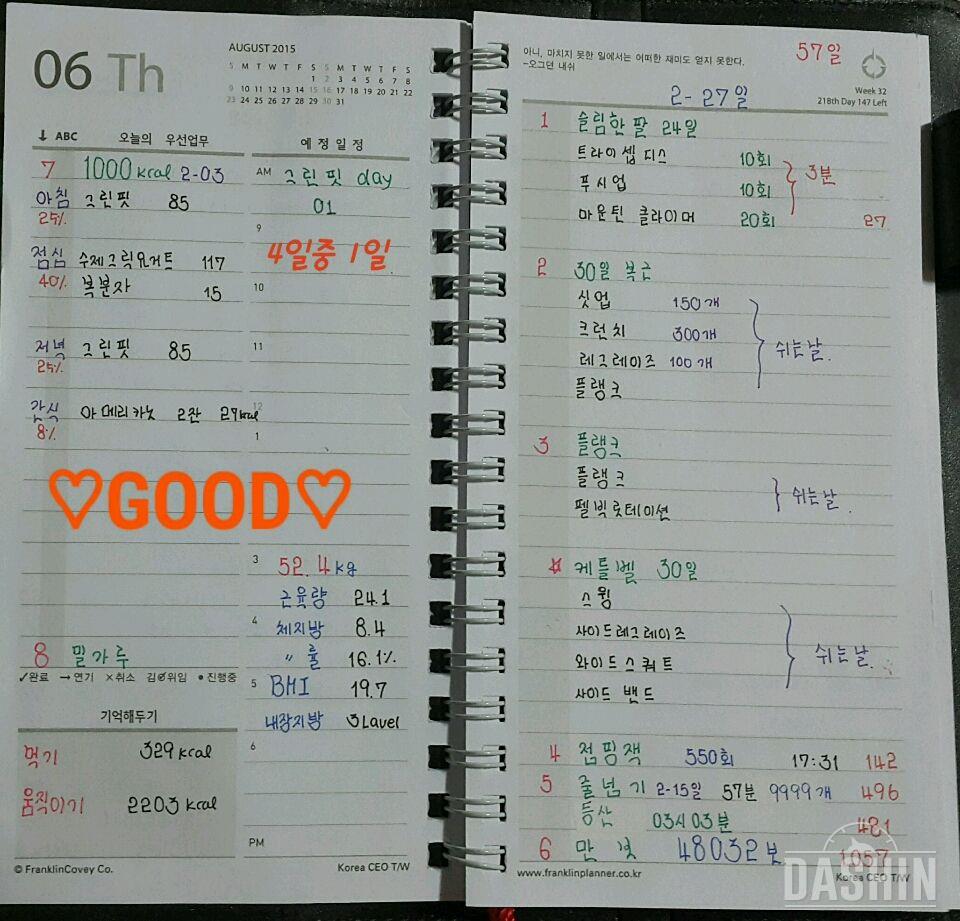 06 Th
AUGUST 2015
S M T W T F S S M T W T F S
1 2 3 4 5 6 7 8
9 10 11 12 13 14 15 16 17 18 19 20 21 22
23 24 25 26 27 28 29 30 31
↓ ABC 오늘의 우선업무
7 1000 kcal 2-03
아침 그린핏 85
25%
점심 수제그릭요거트 117
40% 복분자 15
저녁 그린핏 85
25%
간식 아메리카노 2잔 27kcal
8%
♡GOOD♡
8 밀가루
✓완료 →연기 ×취소 위임 •진행중
기억해두기
먹기 329 kcal
움직이기 2203 kcal
© FranklinCovey Co.
예정일정
AM 그린핏 day
01
9
4일중 1일
10
11
12
1
3 52.4kg
근육량 24.1
4 체지방 8.4
〃 률 16.1%
5 BMI 19.7
내장지방 3Lavel
6
PM
Korea CEO T/W
아니, 마치지 못한 일에서는 어떠한 재미도 얻지 못한다.
-오그던 내쉬
57일
Week 32
218th Day 147 Left
2-27일
1 슬림한 팔 24일
트라이셉 디스 10회
푸시업 10회
3분
마운틴 클라이머 20회 27
2 30일 복근
싯업 150개
크런치 300개
쉬는날.
레그레이즈 100개
플랭크
3 플랭크
플랭크
쉬는날.
펠빅롯테이션
☆ 케틀벨 30일
스윙
사이드레그레이즈
쉬는날.
와이드스쿼트
사이드 밴드
4 점핑잭 550회 17:31 142
5 줄넘기 2-15일 57분 9999개 496
등산 03시03분 481
6 만보 48032보 1057
www.franklinplanner.co.kr
Korea CEO T/W
DASHIN